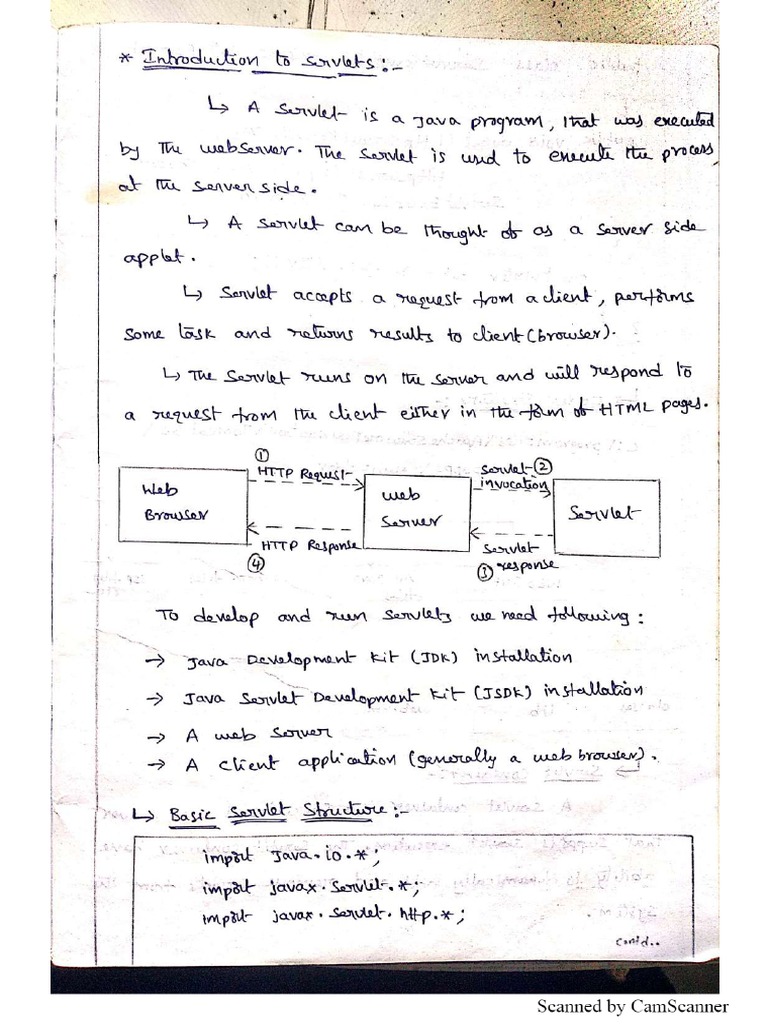 * Introduction to Servlets :-
↳ A Servlet is a Java program, that was executed
by the webserver. The Servlet is used to execute the process
at the server side.
↳ A Servlet can be thought of as a server side
applet.
↳ Servlet accepts a request from a client, performs
some task and returns results to client (browser).
↳ The Servlet runs on the server and will respond to
a request from the client either in the form of HTML pages.
① HTTP Request
Servlet ② invocation
Web Browser
web Server
Servlet
HTTP Response ④
Servlet ③ response
To develop and run servlets we need following :
→ Java Development Kit (JDK) installation
→ Java Servlet Development Kit (JSDK) installation
→ A web server
→ A client application (generally a web browser).
↳ Basic Servlet Structure :-
import Java.io.*;
import javax.Servlet.*;
import javax.Servlet.http.*;
contd..
Scanned by CamScanner